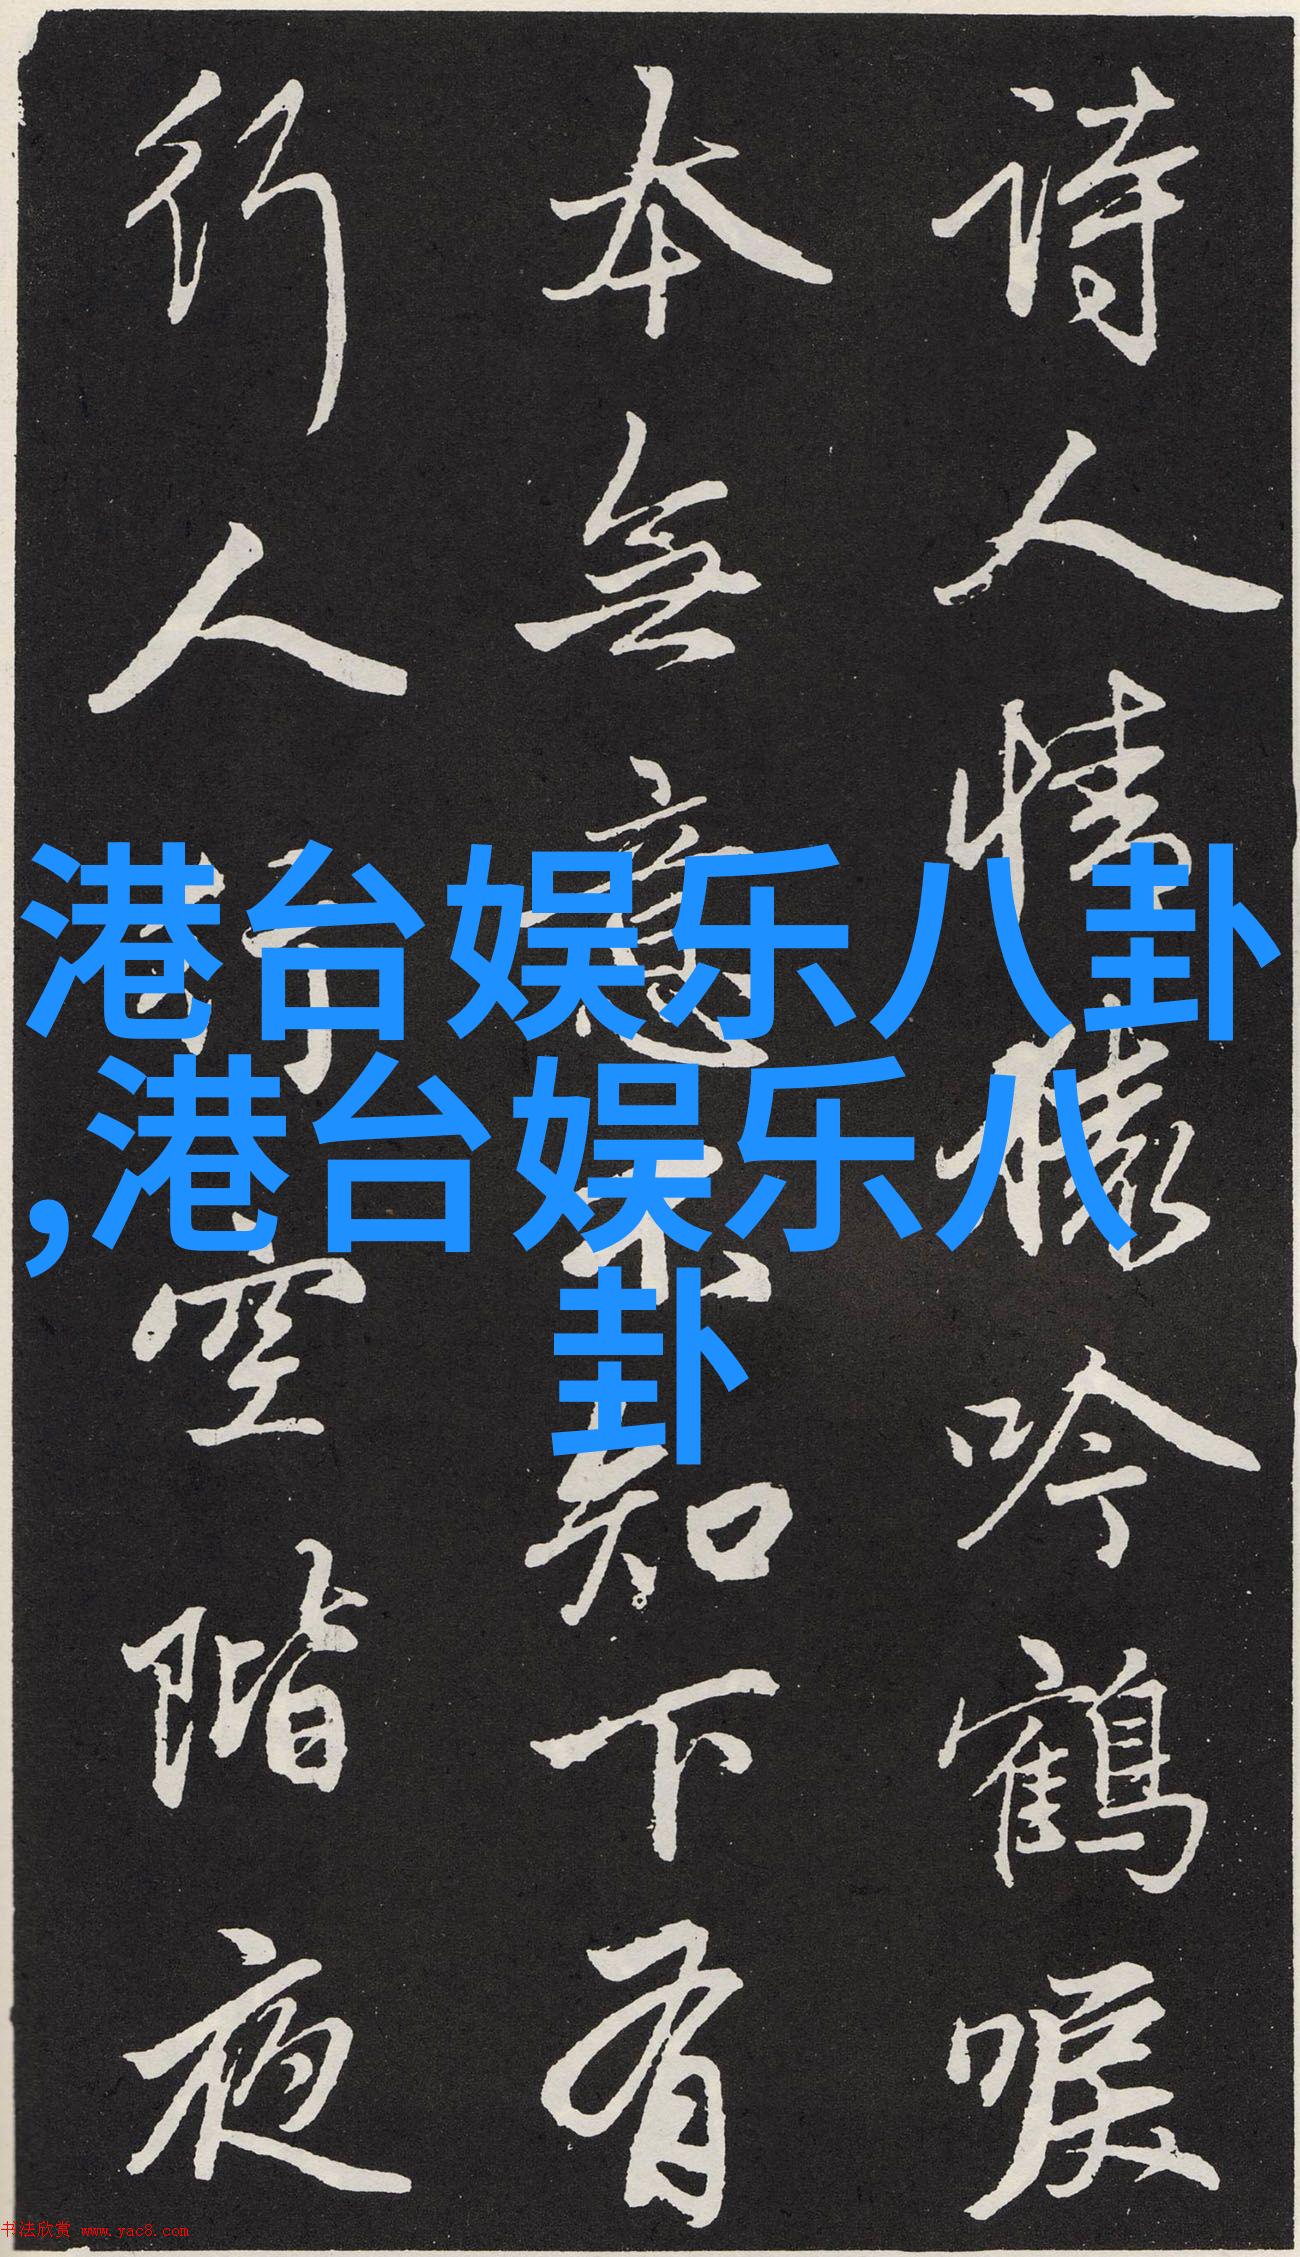 詩人情猿吟鶴唳
本無意不知下有
行人行空階夜
港台娱乐八卦
,港台娱乐八
卦
书法欣赏 www.yac8.com